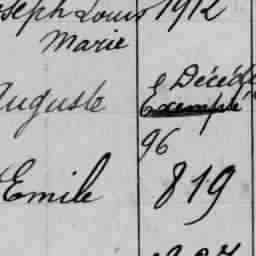 Joseph Louis 1912
Marie
Auguste Décédé
Exempté
96
Emile 819